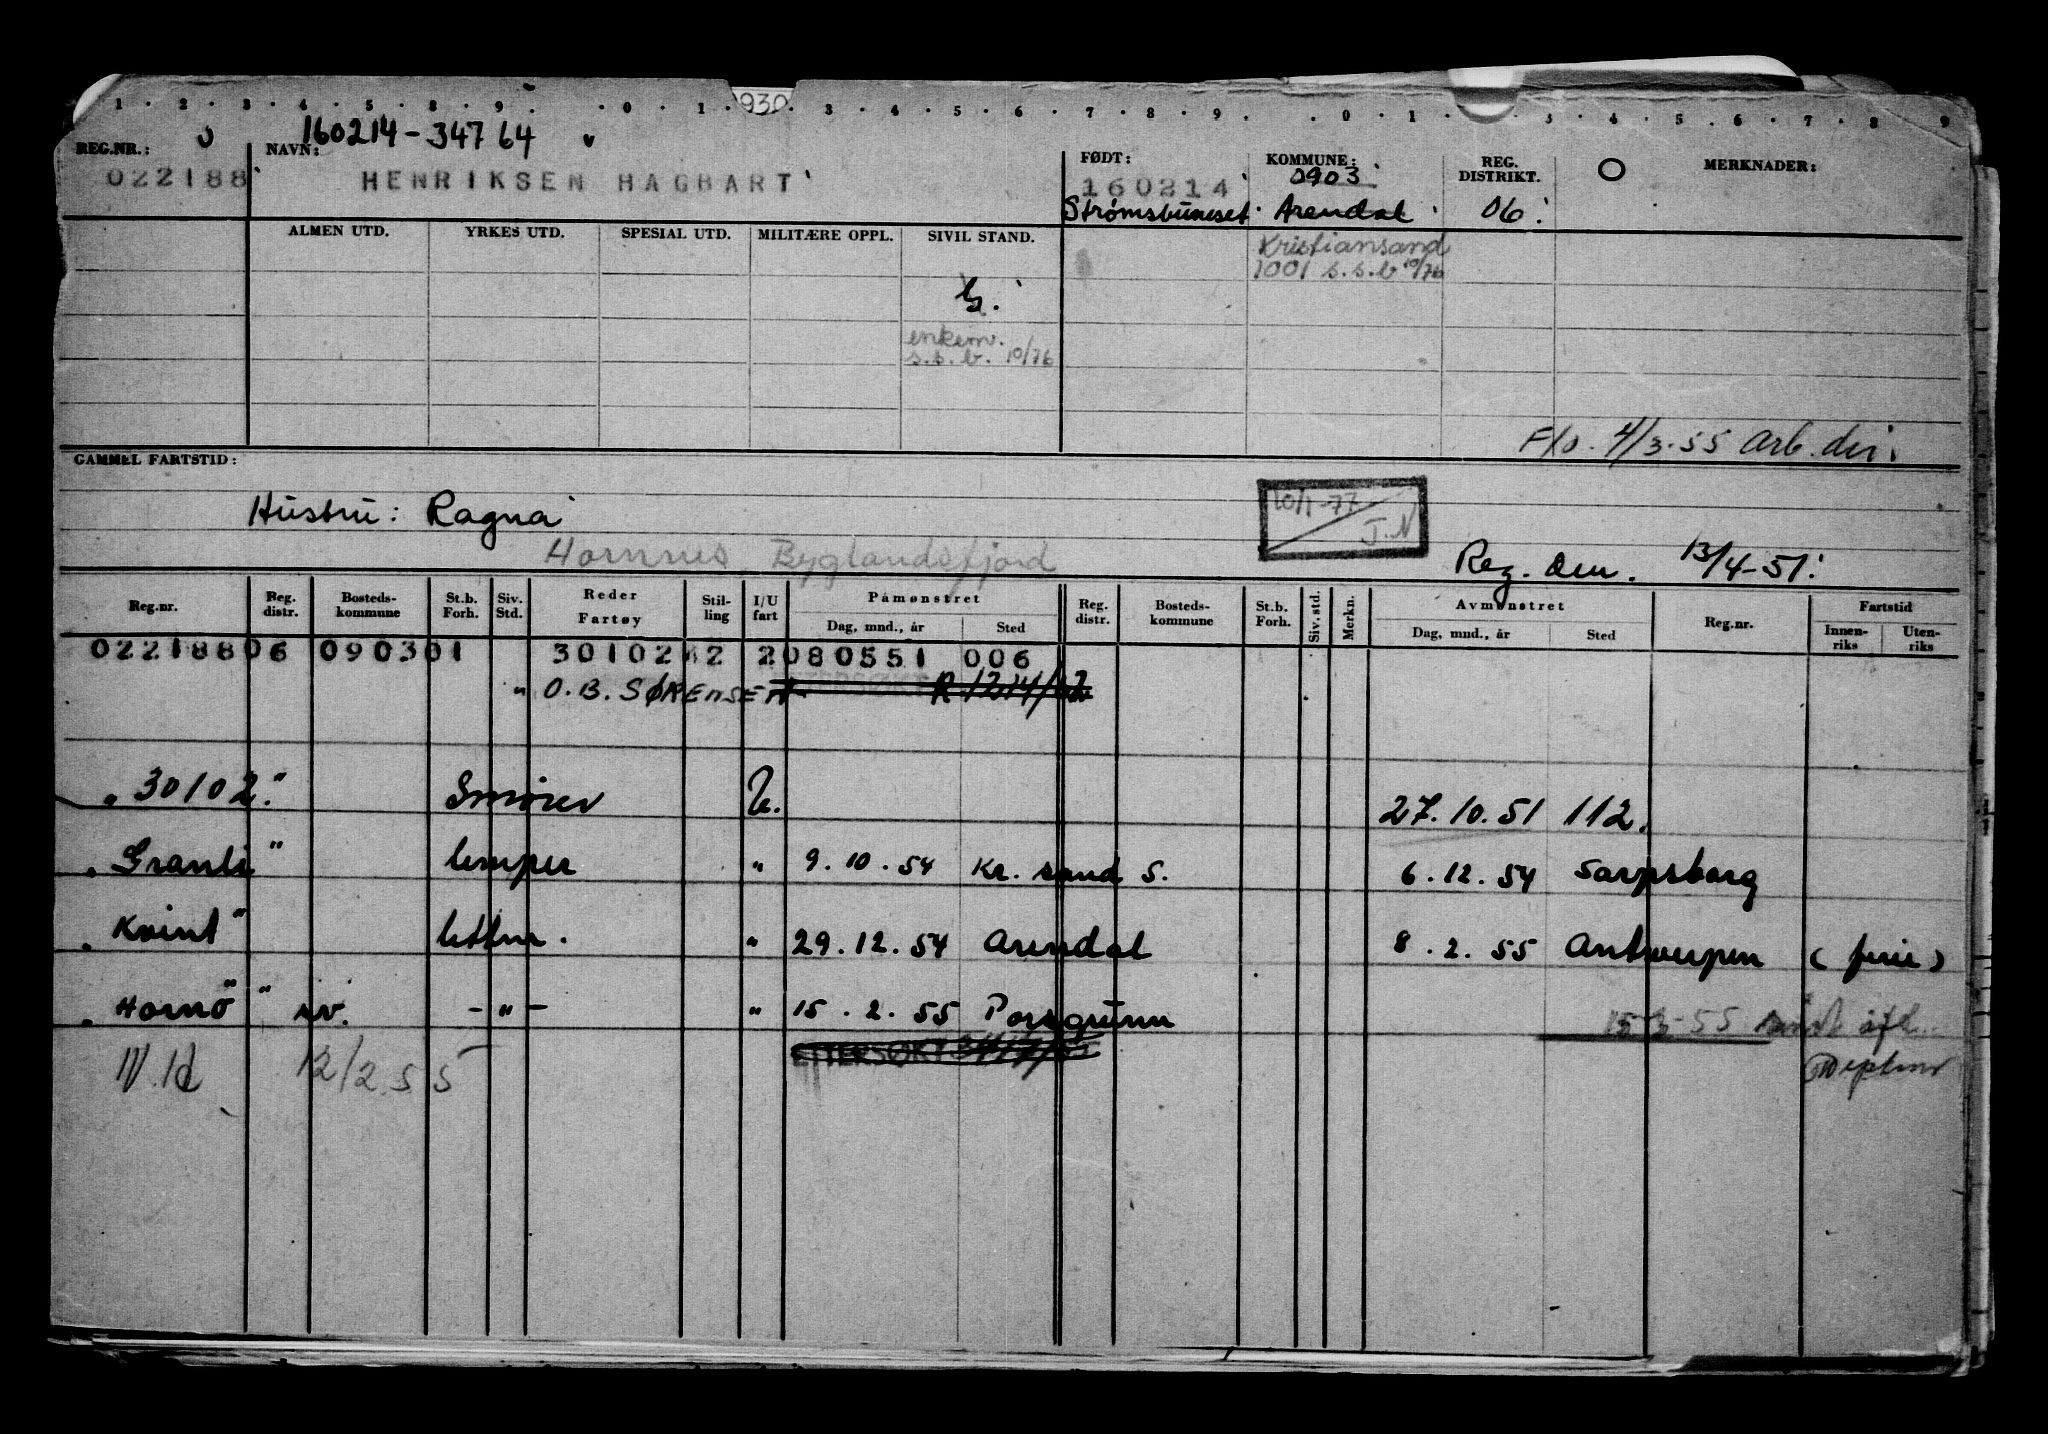 1 . 2 . 3 . 4 . 5 . 8 . 9 . . 0 . 1 . 930 . 3 . 4 . 5 . 6 . 7 . 8 . 9 . . 0 . 1 . 3 . 4 . 5 . 6 . 7 . 8 . 9
160214-34764
REG.NR.: NAVN: FØDT: KOMMUNE: REG. DISTRIKT. MERKNADER:
022188 HENRIKSEN HAGBART 160214 0903 O
Strømsbuneset Arendal 06
ALMEN UTD. YRKES UTD. SPESIAL UTD. MILITÆRE OPPL. SIVIL STAND.
Kristiansand
1001 s.s.b 10/76
G.
enkem.
s.s.b. 10/76
F/o. 4/3.55 Arb. dir.
GAMMEL FARTSTID:
10/1-77
J.N
Hustru: Ragna
Hornnes, Byglandsfjord
Reg. den. 13/4-51.
Reg.nr. Reg. distr. Bosteds-kommune St.b. Forh. Siv. Std. Reder Fartøy Stil-ling I/U fart Påmønstret Reg. distr. Bosteds-kommune St.b. Forh. Siv. std. Merkn. Avmønstret Reg.nr. Fartstid
Dag, mnd., år Sted Dag, mnd., år Sted Innen-riks Uten-riks
02218806 090301 3010242 2080551 006
" O.B. SØRENSEN
"30102." Smører U. 27.10.51 112.
"Granli" lemper " 9.10.54 Kr.sand S. 6.12.54 Sarpsborg
"Kvint" lettm. " 29.12.54 Arendal 8.2.55 Antwerpen (ferie)
"Hornö" -"- " 15.2.55 Porsgrunn
15-3-55
12/2.55 ETTERSØKT